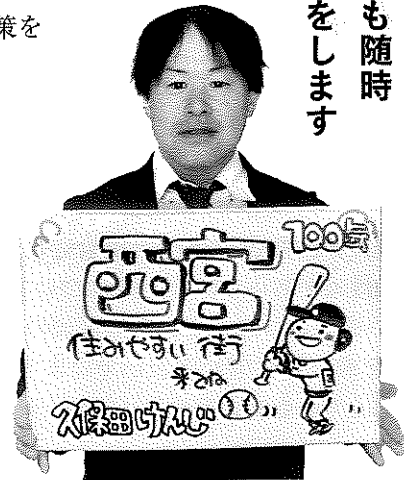 も随時
をします
策を
100歳
西宮
住みやすい街
来てね
久保田けんじ